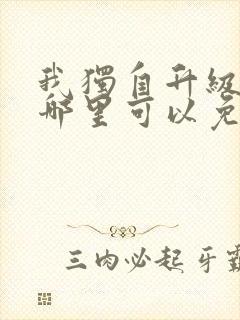 我獨自升級
哪里可以免
三肉必起牙霸